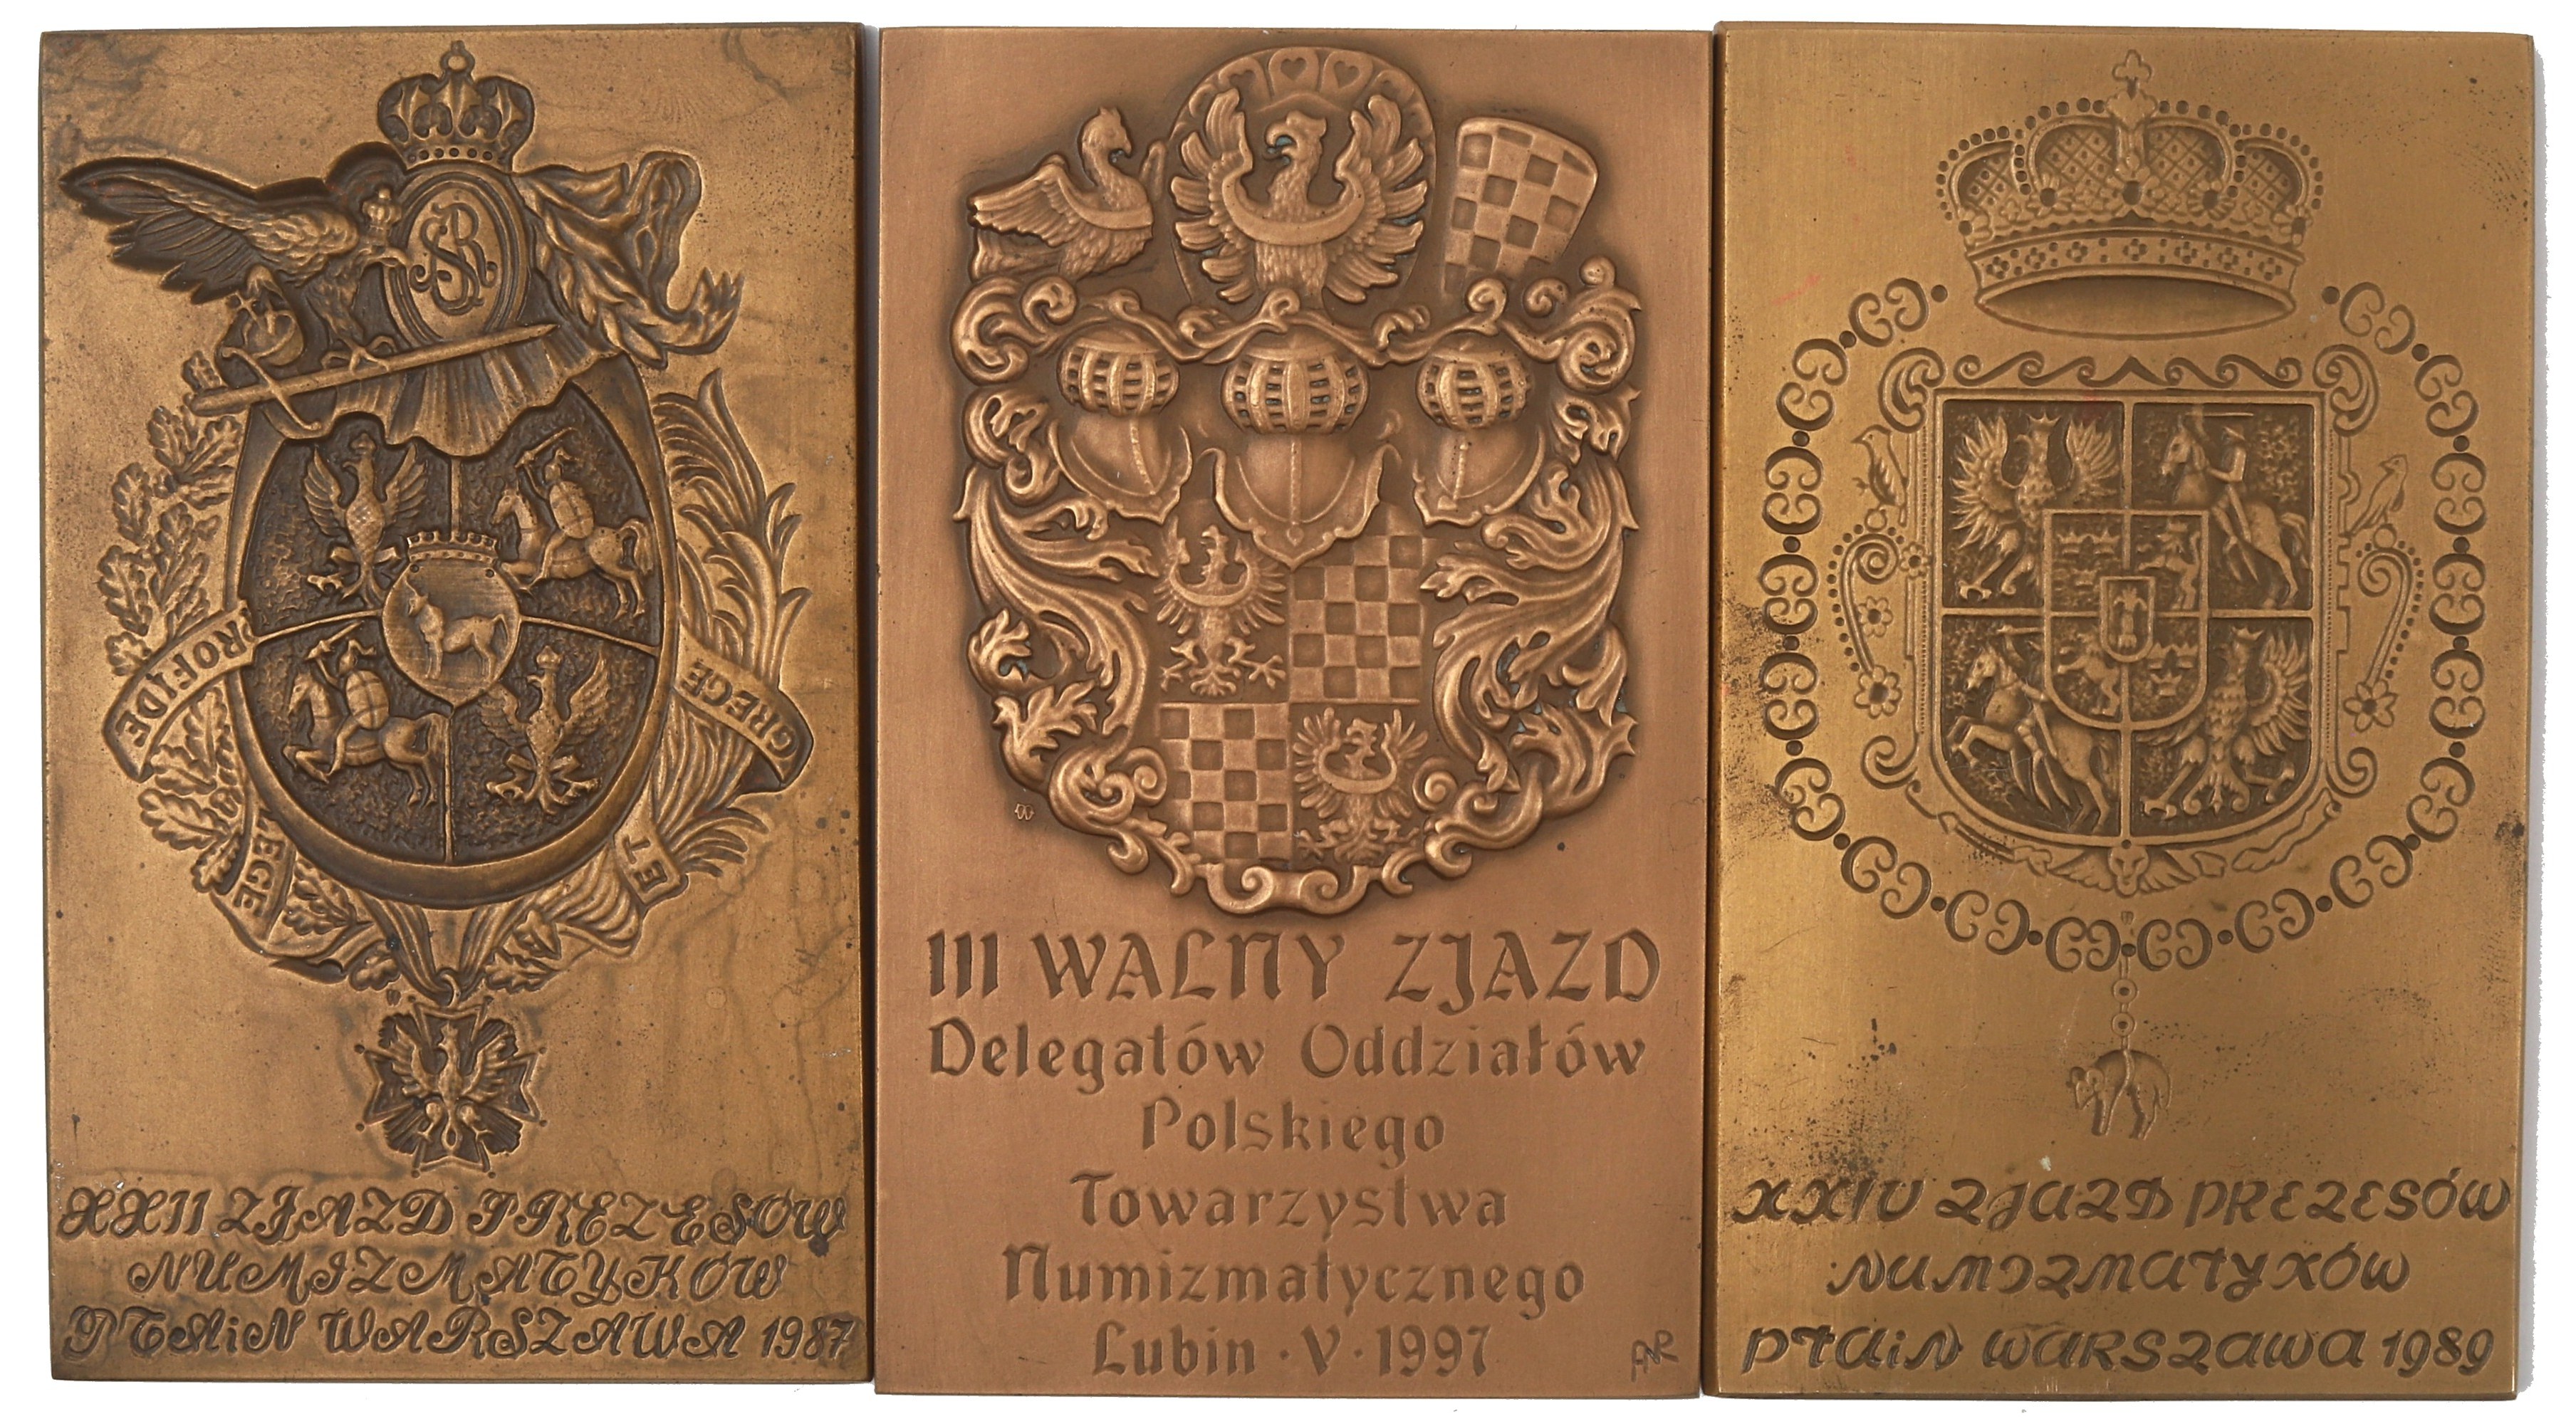 SR
PROFIDE
LEGE
ET
GREGE
XXII ZJAZD PREZESÓW
NUMIZMATYKÓW
PTAiN WARSZAWA 1987
III WALNY ZJAZD
Delegatów Oddziałów
Polskiego
Towarzystwa
Numizmatycznego
Lubin · V · 1997
XXIV ZJAZD PREZESÓW
NUMIZMATYKÓW
PTAiN WARSZAWA 1989